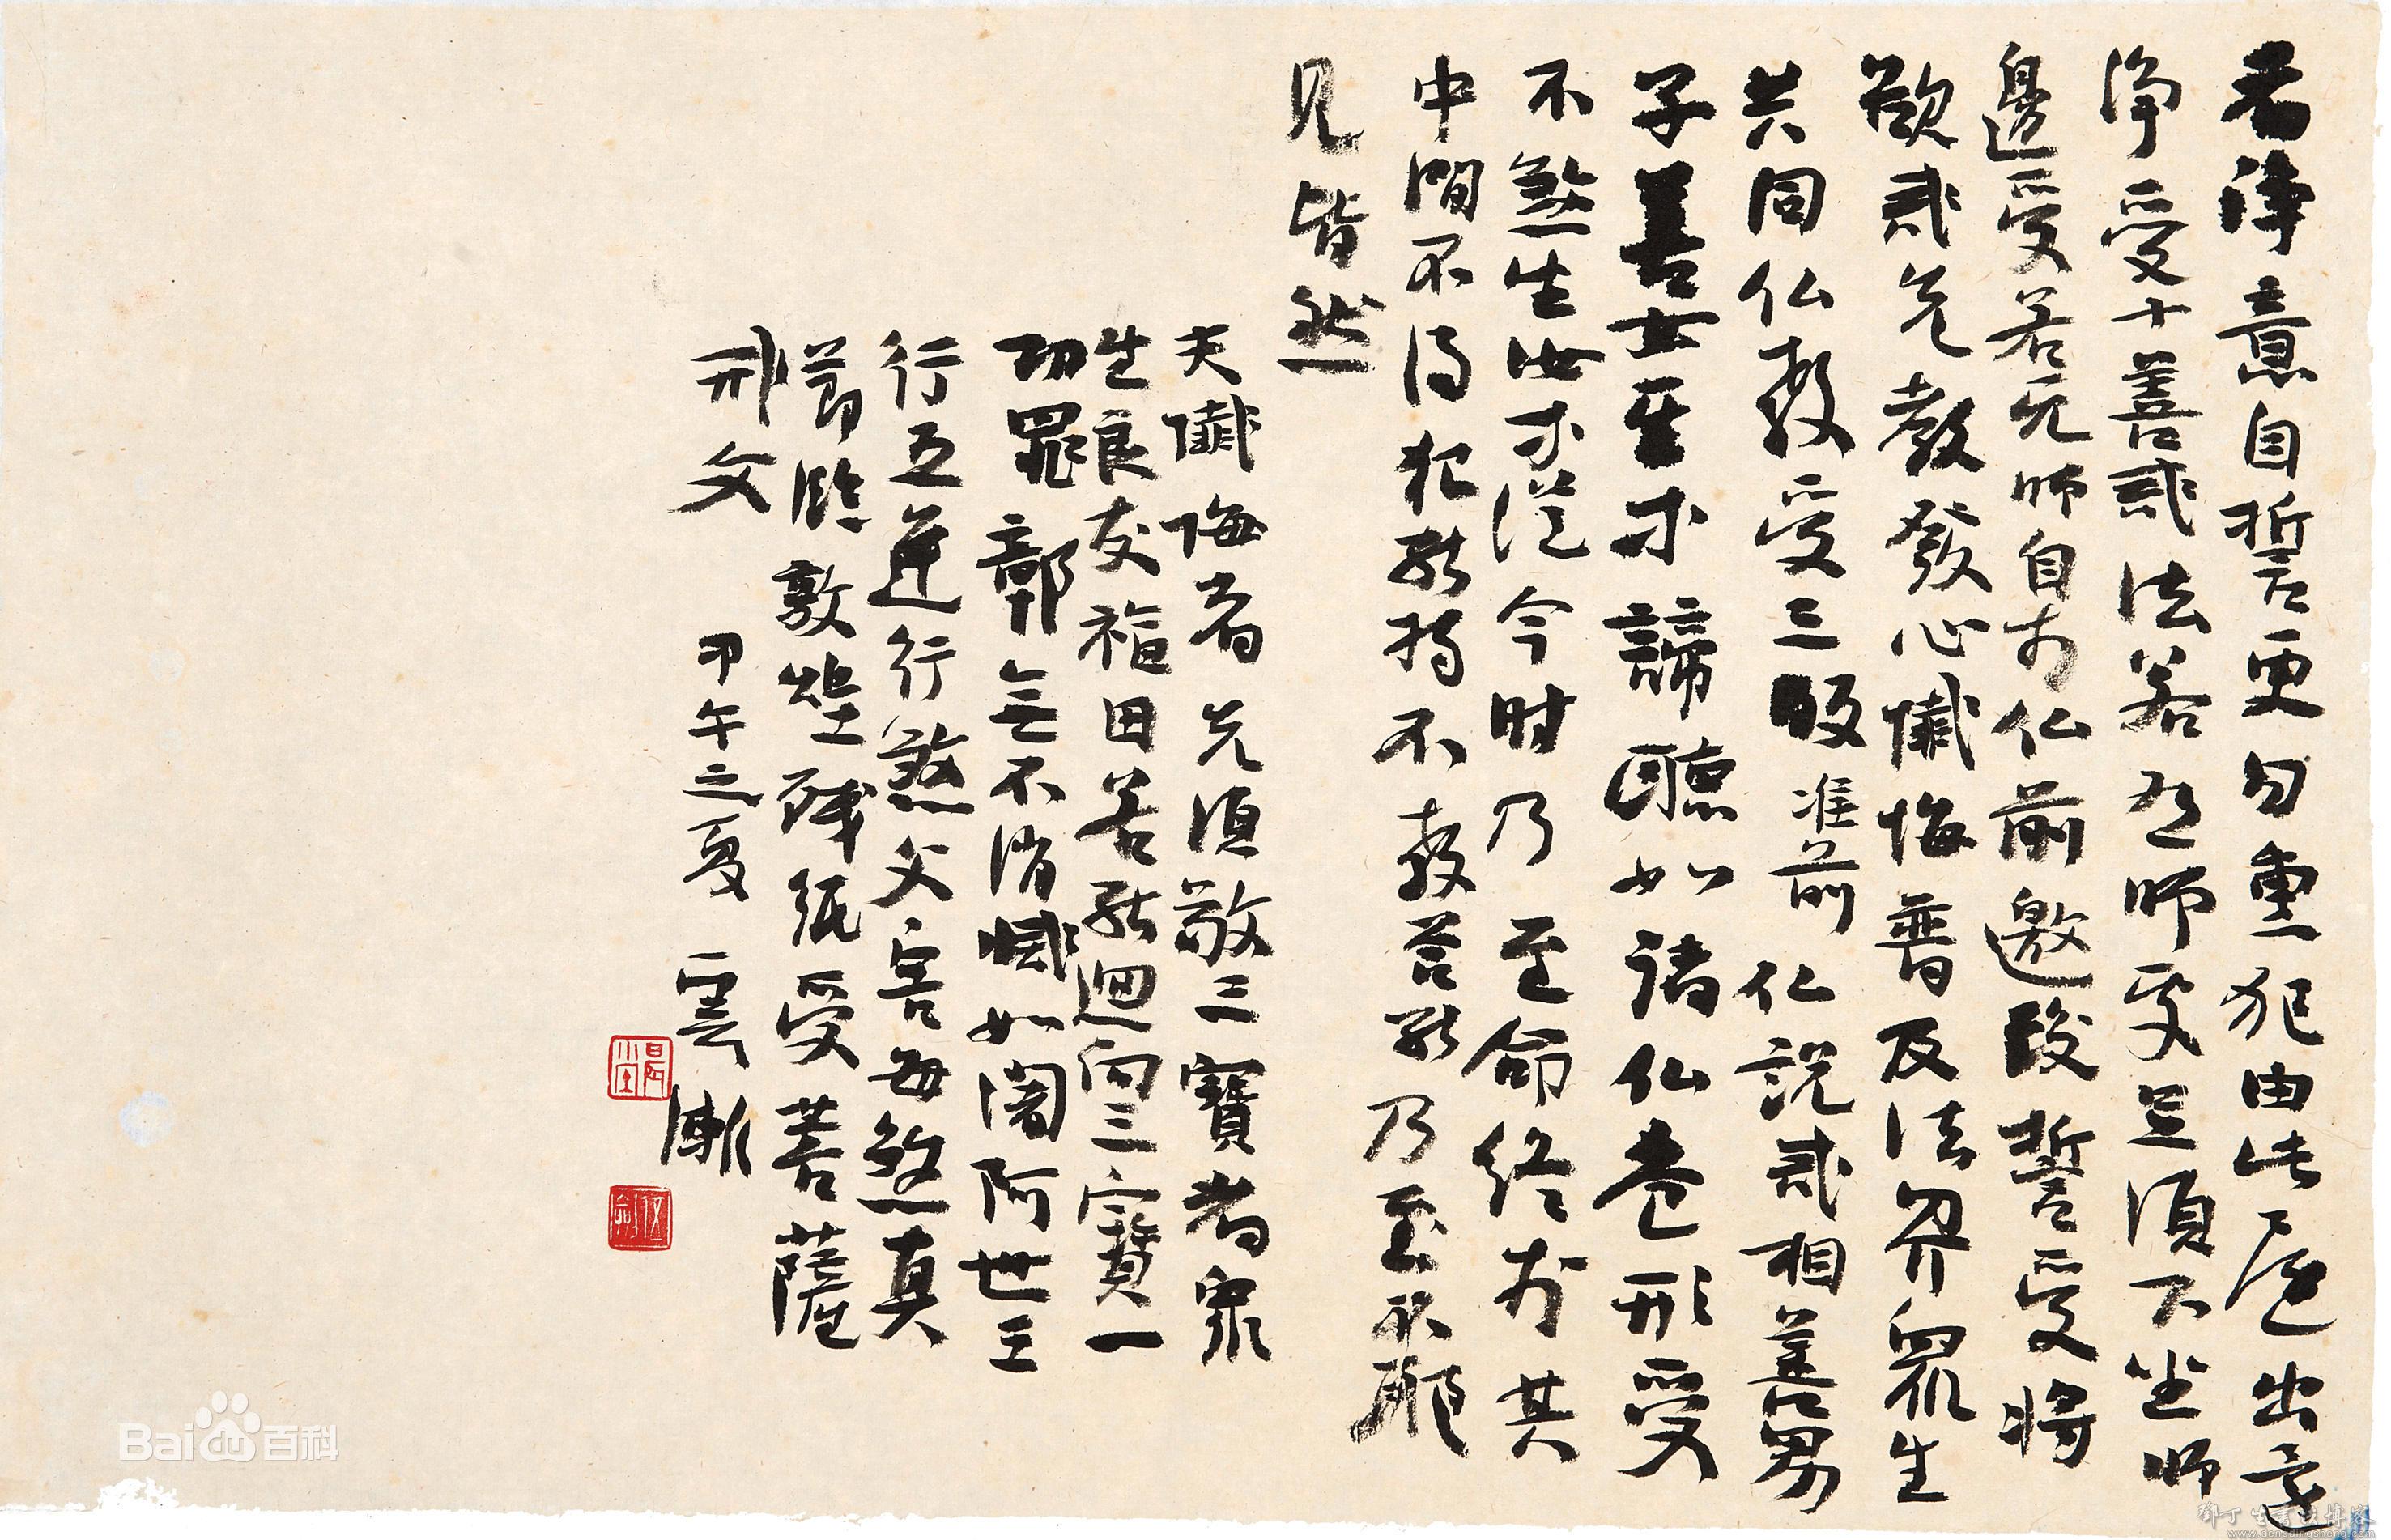 若淨意自誓更勿重犯由此應出意
淨受十善戒法若有師受三須下坐師
邊受若无師自於仏前邀設誓受將
欲戒先教發心懺悔普及法界眾生
共同仏教受三皈准前仏說戒相善男
子善女至求諦聽如諸仏盡形受
不煞生汝求從今時乃至命終於其
中間不得犯能持不教答能乃至不耶
見皆然
夫懺悔者先須敬三寶者眾
生良友福田若能迴向三寶一
切罪鄣無不消滅如闍阿世王
行五逆行煞父害母煞真
節臨敦煌殘紙受菩薩
戒文
甲午之夏 一雲漸
Bai百科
www.dengdingsheng.com